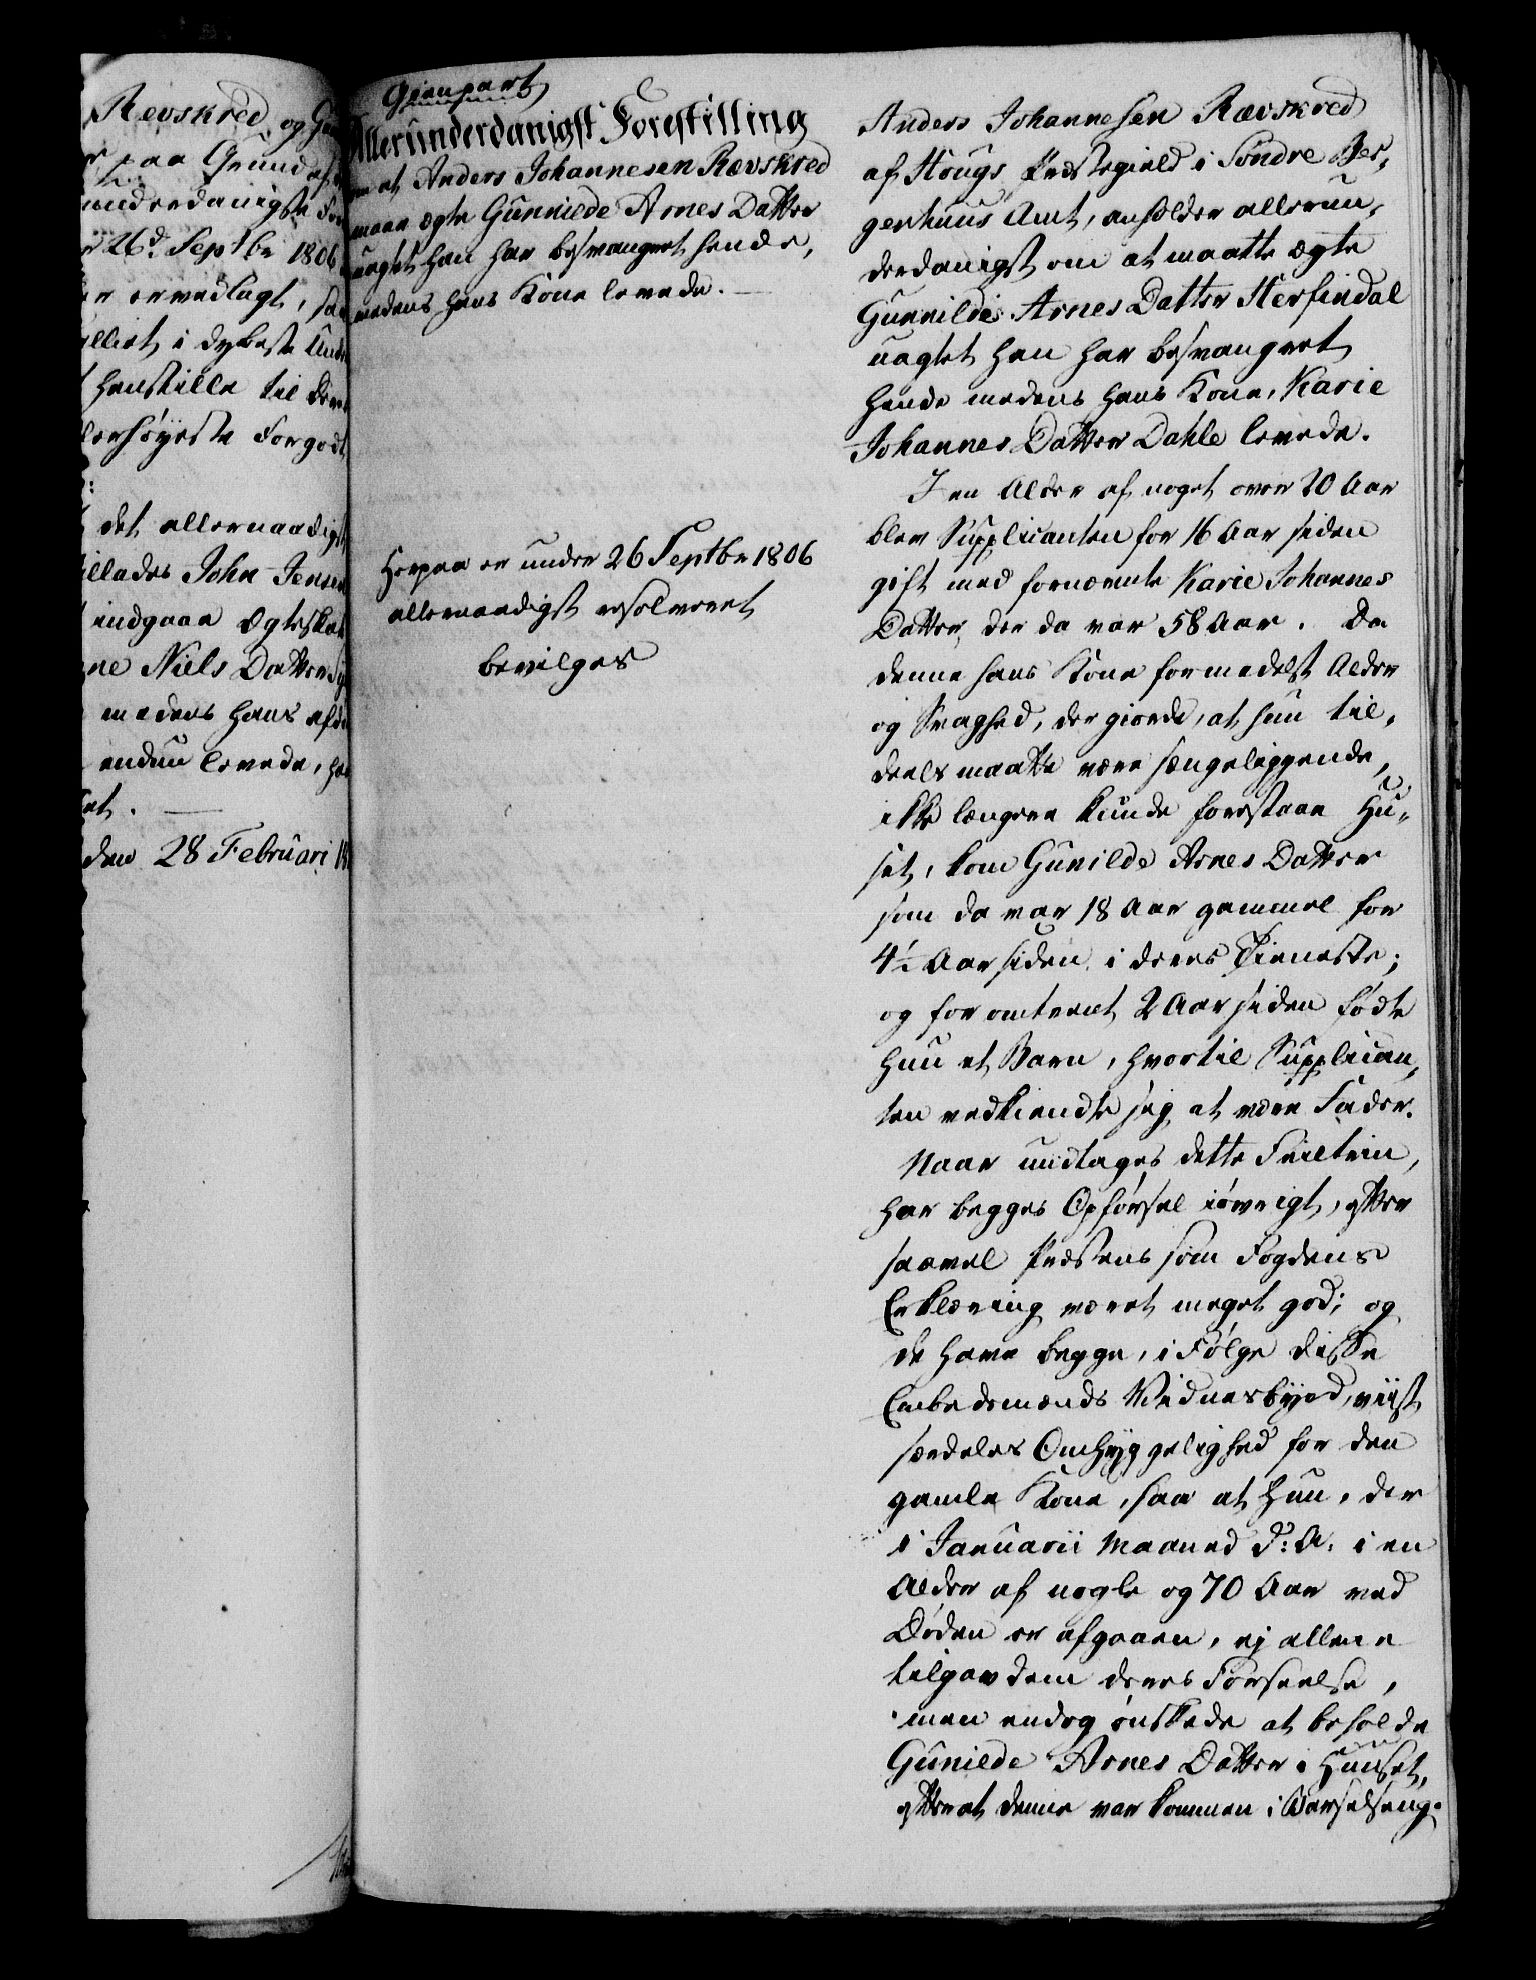 Revskred og
paa Grund af
underdanigste
26d Septbr 1806
er vedlagt,
i dybeste
henstille til
lerhøyeste Forgodt
det allernaadigst
tillades John Jensen
indgaae Ægteskab
ne Niels Datter
medens hans
endnu levede,
et.
den 28 Februari
Gienpart
Allerunderdanigst Forestilling
om at Anders Johannesen Rævskred
maae ægte Gunnilde Arnes Datter
uagtet han har besvangret hende,
medens hans Kone levede.
Herpaa er under 26 Septbr 1806
allernaadigst resolveret
bevilges
Anders Johannesen Rævskred
af Hougs Præstegield i Søndre Ber-
genhuus Amt, anholder allerun-
derdanigst om at maatte ægte
Gunnilde Arnes Datter Herfindal
uagtet han har besvangret
hende medens hans Kone, Karie
Johannes Datter Dahle levede.
I en Alder af noget over 20 Aar
blev Supplicanten for 16 Aar siden
gift med fornævnte Karie Johannes
Datter, der da var 58 Aar. Da
denne hans Kone formedelst Alder
og Svaghed, der giorde, at hun til-
deels maatte være sængeliggende,
ikke længere kunde forestaae Hu-
set, kom Gunilde Arnes Datter
som da var 18 Aar gammel for
4½ Aar siden i deres Tieneste;
og for omtrent 2 Aar siden fødte
hun et Barn, hvortil Supplican-
ten vedkiendte sig at være Fader.
Naar undtages dette Feiltrin,
har begges Opførsel iøvrigt, efter
saavel Præstens som Fogdens
Erklæring været meget god; og
de have begge, i Følge disse
Embedsmænds Vidnesbyrd, viist
særdeles Omhyggelighed for den
gamle Kone, saa at hun, der
i Januarii Maaned d: A: i en
Alder af nogle og 70 Aar ved
Døden er afgaaen, ej allene
tilgav dem deres Forseelse,
men endog ønskede at beholde
Gunilde Arnes Datter i Huuset,
efterat denne var kommen i Barselseng.